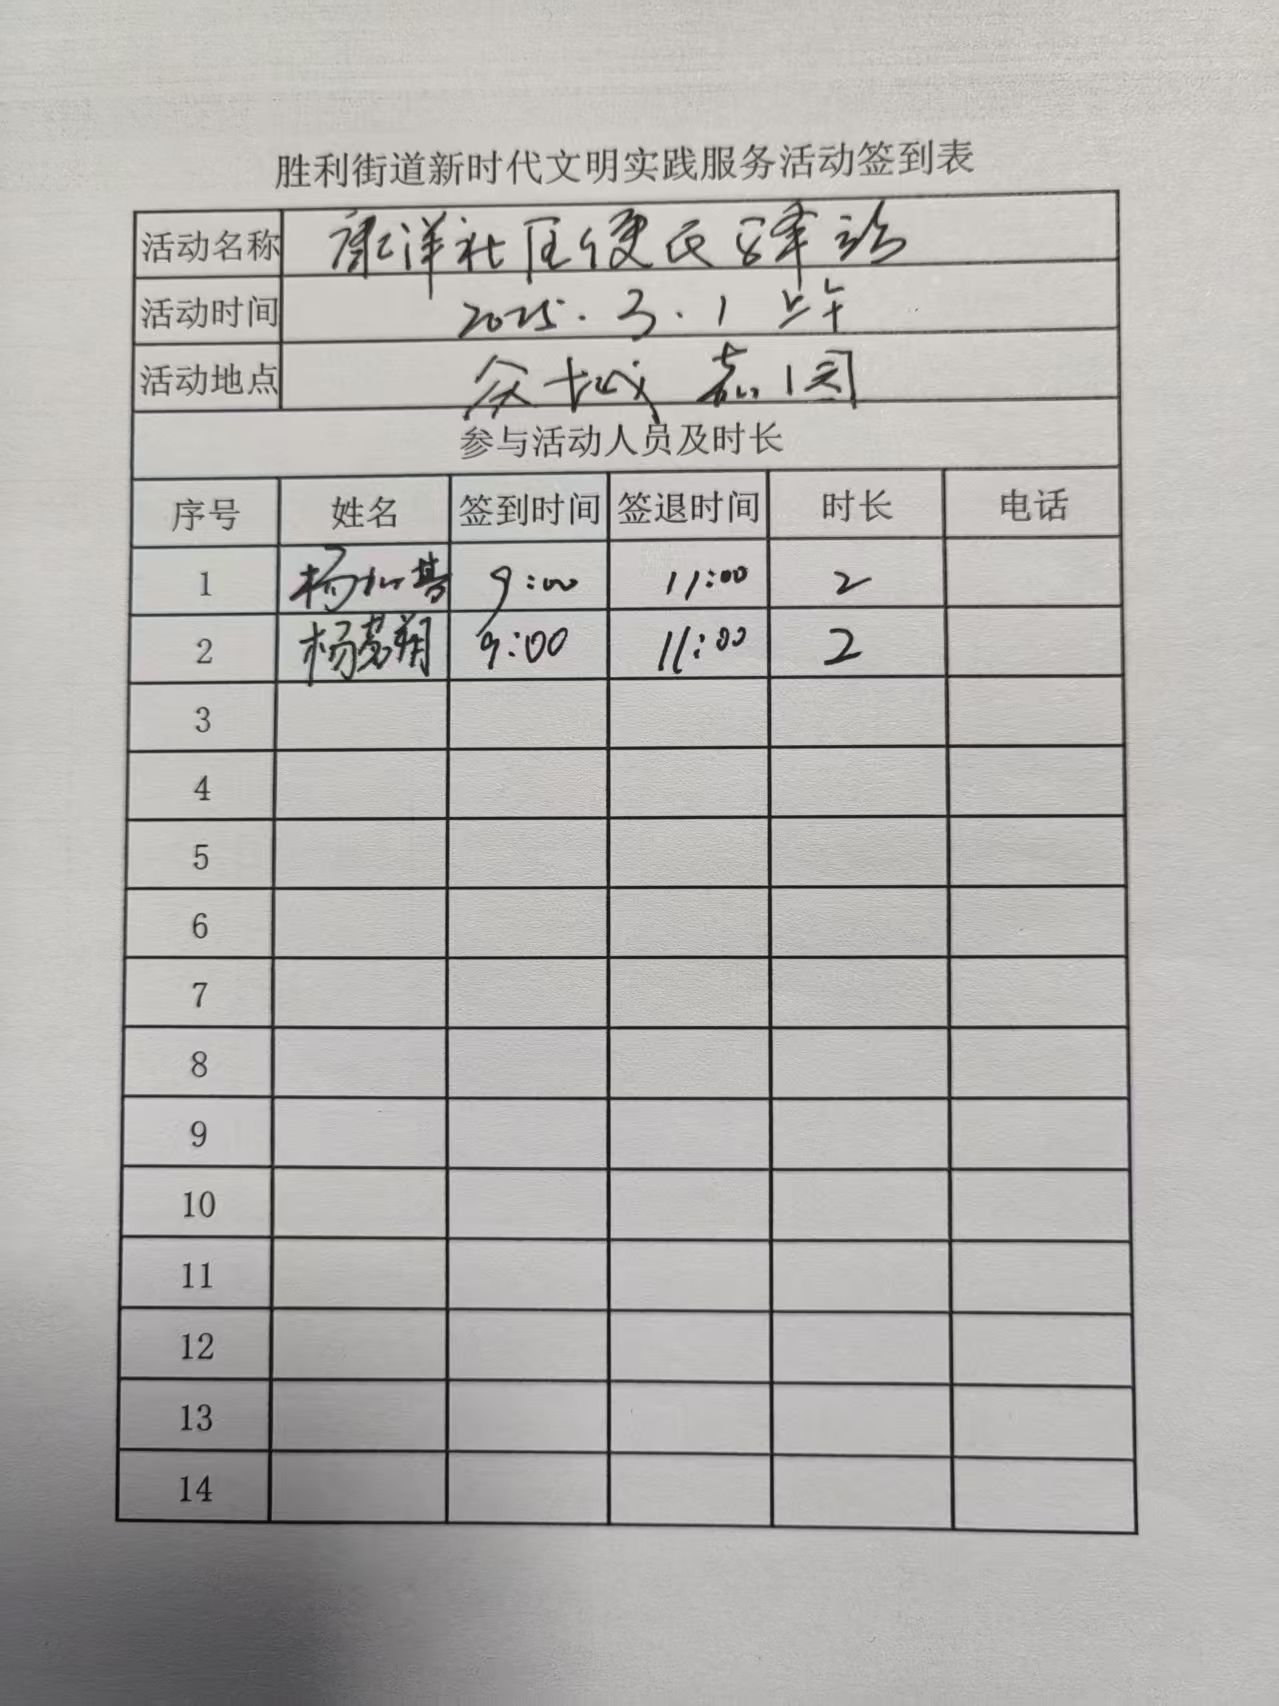 胜利街道新时代文明实践服务活动签到表
活动名称 康洋社区便民驿站
活动时间 2025.3.1 上午
活动地点 众城嘉园
参与活动人员及时长
序号 姓名 签到时间 签退时间 时长 电话
1 杨 9:00 11:00 2
2 杨茗翔 9:00 11:00 2
3
4
5
6
7
8
9
10
11
12
13
14